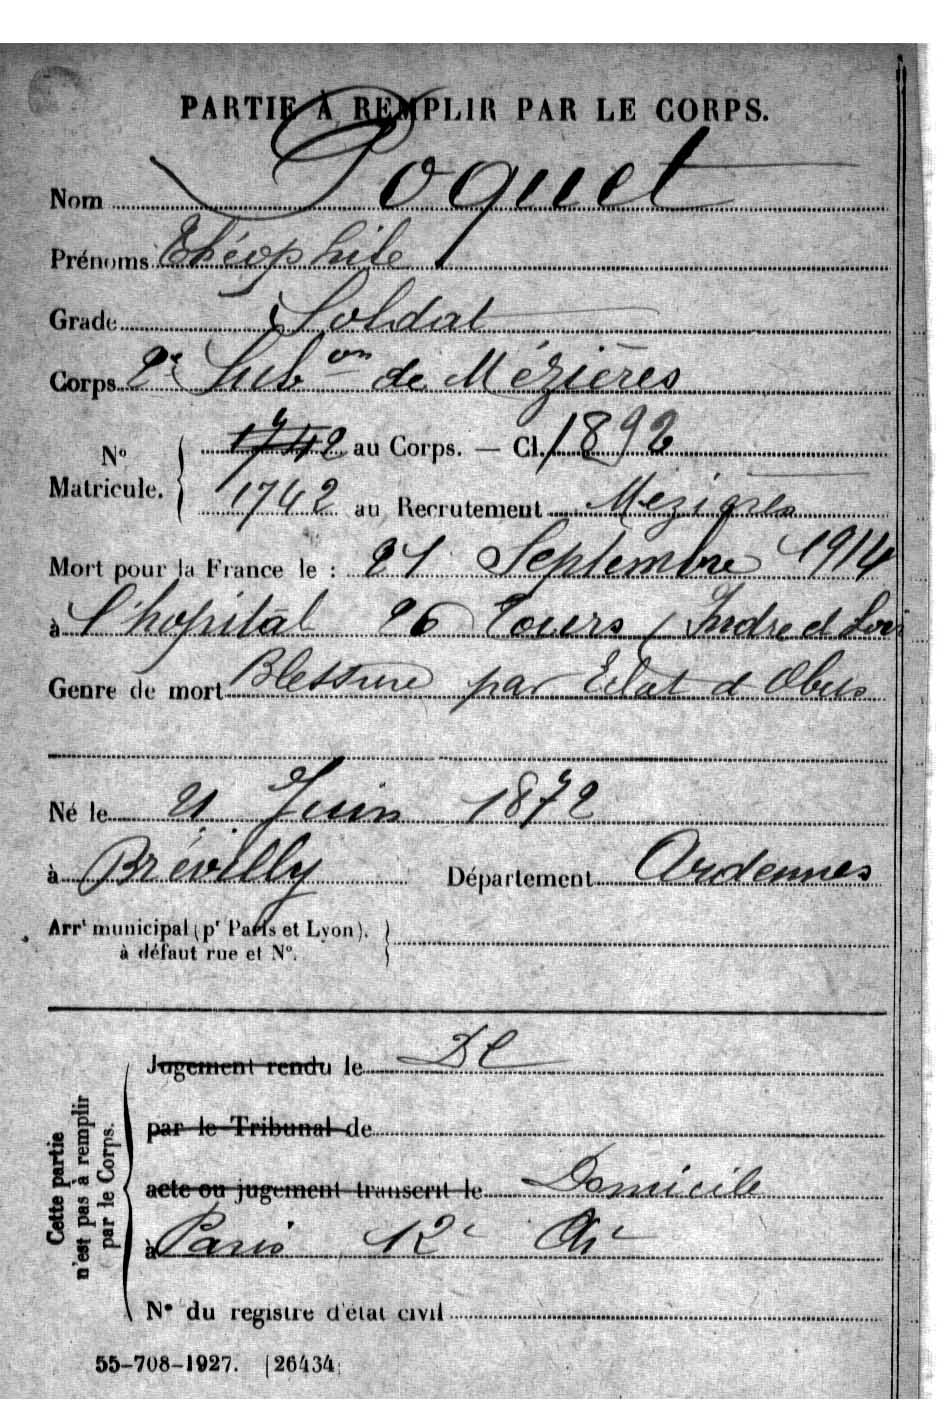 PARTIE À REMPLIR PAR LE CORPS.
Nom Poquet
Prénoms Théophile
Grade Soldat
Corps 2e Subon de Mézières
No Matricule. 1742 au Corps. — Cl. 1892
1742 au Recrutement Mézières
Mort pour la France le : 21 Septembre 1914
à l'hopital 26 Tours (Indre et Loi
Genre de mort Blessure par Eclat d Obus
Né le 21 Juin 1872
à Brévilly Département Ardennes
Arrt municipal (pr Paris et Lyon).
à défaut rue et No.
Cette partie
n'est pas à remplir
par le Corps.
Jugement rendu le
par le Tribunal de
acte ou jugement transcrit le Domicile
à Paris 12e Art
No du registre d'état civil
55-708-1927. [26434]